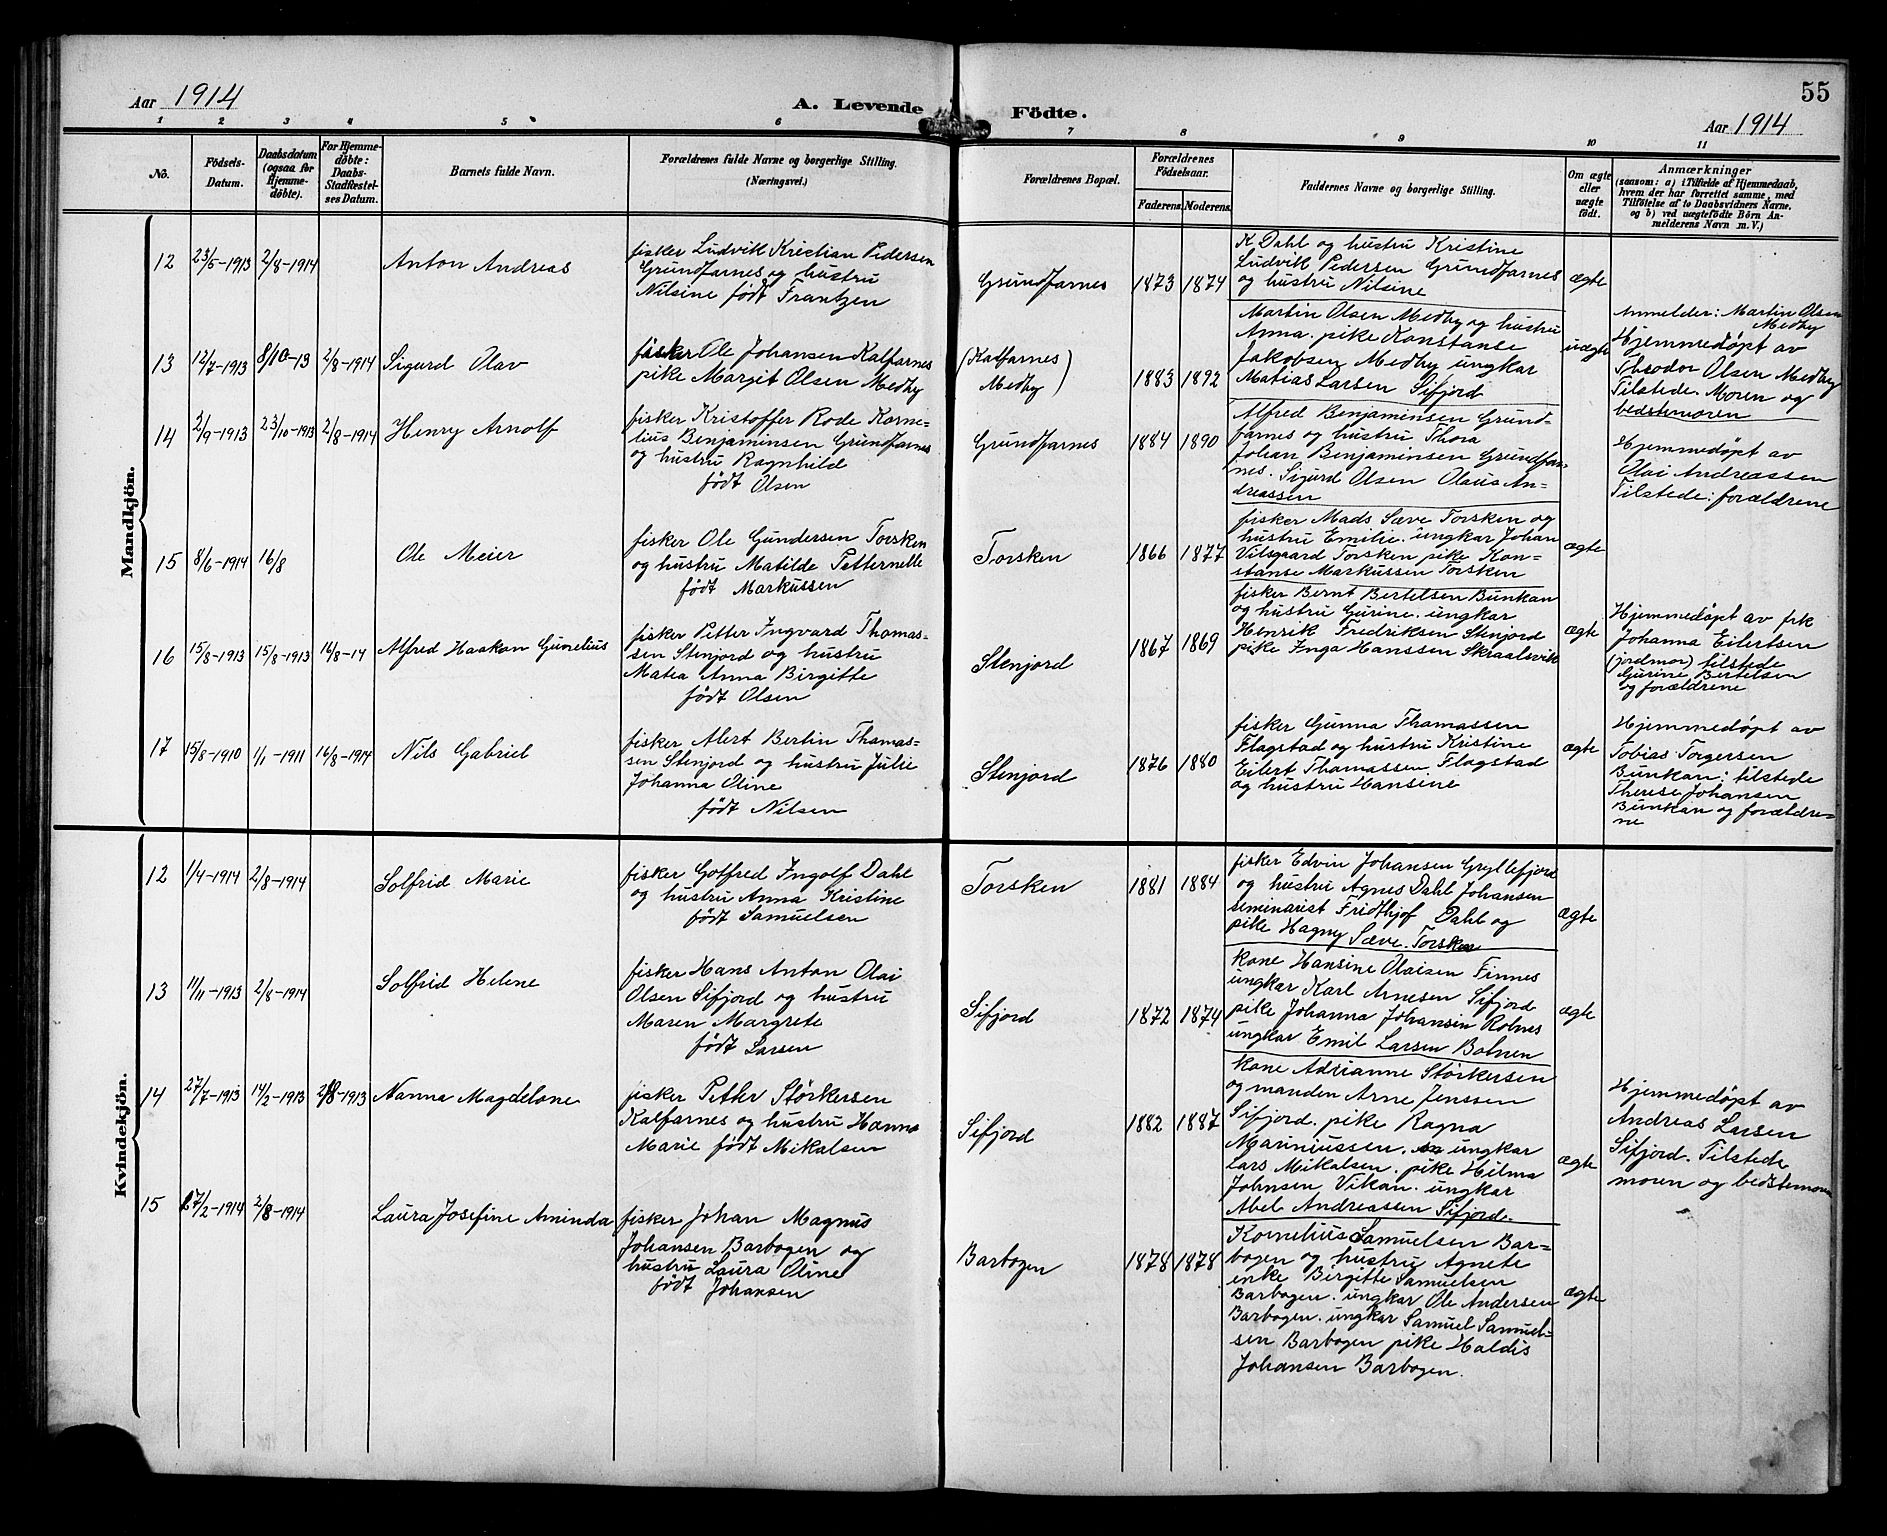 Aar 1914
A. Levende Födte.
55
Aar 1914
1 2 3 4 5 6 7 8 9 10 11
Nô.
Födsels-
Datum.
Daabsdatum
(ogsaa for
Hjemme-
döbte).
For Hjemme-
döbte:
Daabs-
Stadfæstel-
ses Datum.
Barnets fulde Navn.
Forældrenes fulde Navne og borgerlige Stilling.
(Næringsvei.)
Forældrenes Bopæl.
Forældrenes
Födselsaar.
Faderens. Moderens.
Faddernes Navne og borgerlige Stilling.
Om ægte
eller
uægte
födt.
Anmærkninger
(saasom: a) i Tilfælde af Hjemmedaab,
hvem der har forrettet samme, med
Tilföielse af to Daabsvidners Navne.
og b) ved uægtefödte Börn An-
melderens Navn m. V.)
Mandkjön.
12 23/5-1913 2/8-1914
Anton Andreas
fisker Ludvik Kristian Pedersen
Grundfarnes og hustru
Nilsine født Frantzen
Grundfarnes
1873 1874
K Dahl og hustru Kristine
Ludvik Pedersen Grundfarnes
og hustru Nilsine
ægte
13 12/7-1913 8/10-13 2/8-1914
Sigurd Olav
fisker Ole Johansen Kalfarnes
pike Margit Olsen Medby
(Kalfarnes
Medby)
1883 1892
Martin Olsen Medby og hustru
Anna. pike Konstanse
Jakobsen Medby ungkar
Matias Larsen Sifjord
uægte
Anmelder: Martin Olsen
Medby
Hjemmedøpt av
Theodor Olsen Medby
Tilstede. Moren og
bedstemoren
14 2/9-1913 23/10-1913 2/8-1914
Henry Arnolf
fisker Kristoffer Rode Korne-
lius Benjaminsen Grundfarnes
og hustru Ragnhild
født Olsen
Grundfarnes
1884 1890
Alfred Benjaminsen Grund-
farnes og hustru Thora
Johan Benjaminsen Grundfar-
nes. Sigurd Olsen Olaus An-
dreassen
Hjemmedøpt av
Olai Andreassen
Tilstede: forældrene
15 8/6-1914 16/8
Ole Meier
fisker Ole Gundersen Torsken
og hustru Matilde Petternelle
født Markussen
Torsken
1866 1877
fisker Mads Sæve Torsken og
hustru Emilie. ungkar Johan
Vilsgaard Torsken pike Kon-
stanse Markussen Torsken
ægte
16 15/8-1913 15/8-1913 16/8-14
Alfred Haakon Gunelius
fisker Petter Ingvard Thomas-
sen Stenjord og hustru
Matea Anna Birgitte
født Olsen
Stenjord
1867 1869
fisker Bernt Bertelsen Bunkan
og hustru Gurine. ungkar
Henrik Fredriksen Stenjord
pike Inga Hanssen Skraalsvik
ægte
Hjemmedøpt av frk
Johanna Eilertsen
(jordmor) tilstede
Gurine Bertelsen
og forældrene
17 15/8-1910 1/1-1911 16/8-1914
Nils Gabriel
fisker Alert Berlin Thomas-
sen Stenjord og hustru Julie
Johanna Oline
født Nilsen
Stenjord
1876 1880
fisker Gunna Thomassen
Flagstad og hustru Kristine
Eilert Thomassen Flagstad
og hustru Hansine
ægte
Hjemmedøpt av
Tobias Torgersen
Bunkan: tilstede
Therese Johansen
Bunkan og forældre-
ne
Kvindekjön.
12 1/4-1914 2/8-1914
Solfrid Marie
fisker Gotfred Ingolf Dahl
og hustru Anna Kristine
født Samuelsen
Torsken
1881 1884
fisker Edvin Johansen Gryllefjord
og hustru Agnes Dahl Johansen
seminarist Fridthjof Dahl og
pike Hagny Sæve. Torsken
ægte
13 11/11-1913 2/8-1914
Solfrid Helene
fisker Hans Anton Olai
Olsen Sifjord og hustru
Maren Margrete
født Larsen
Sifjord
1872 1874
kone Hansine Olaisen Finnes
ungkar Karl Arnesen Sifjord
pike Johanna Johansen Rolnes
ungkar Emil Larsen Bolnen
ægte
14 27/7-1913 14/2-1913 2/8-1913
Nanna Magdelone
fisker Petter Størkersen
Kalfarnes og hustru Hanna
Marie født Mikalsen
Sifjord
1882 1887
kone Adrianne Størkersen
og manden Arne Jenssen
Sifjord. pike Ragna
Mariniussen. ungkar
Lars Mikalsen. pike Hilma
Johnsen Vikan. ungkar
Abel Andreassen Sifjord.
ægte
Hjemmedøpt av
Andreas Larsen
Sifjord. Tilstede
moren og bedstemoren
15 27/2-1914 2/8-1914
Laura Josefine Aminda
fisker Johan Magnus
Johansen Barbogen og
hustru Laura Oline
født Johansen
Barbogen
1878 1878
Kornelius Samuelsen Bar-
bogen og hustru Agnete
enke Birgitte Samuelsen
Barbogen. ungkar Ole Andersen
Barbogen. ungkar Samuel Samuel-
sen Barbogen pike Haldis
Johansen Barbogen.
ægte